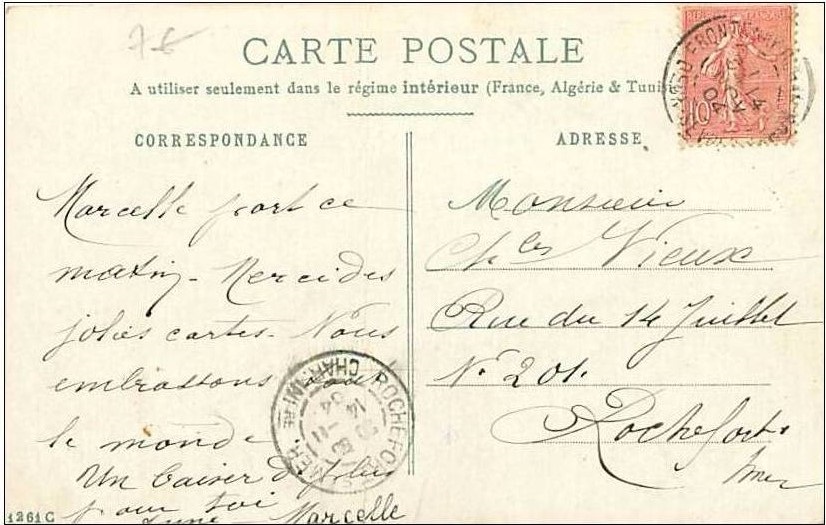 7€
CARTE POSTALE
A utiliser seulement dans le régime intérieur (France, Algérie & Tunis
CORRESPONDANCE
ADRESSE
10c
Marcelle part ce
matin - Merci des
jolies cartes. Nous
embrassons tout
le monde.
Un baiser de plus
pour toi
Marcelle
Monsieur
Ch les Vieux
Rue du 14 Juillet
N. 201.
Rochefort s
mer
ROCHEFORT MER
CHAR. INF RE
1261C